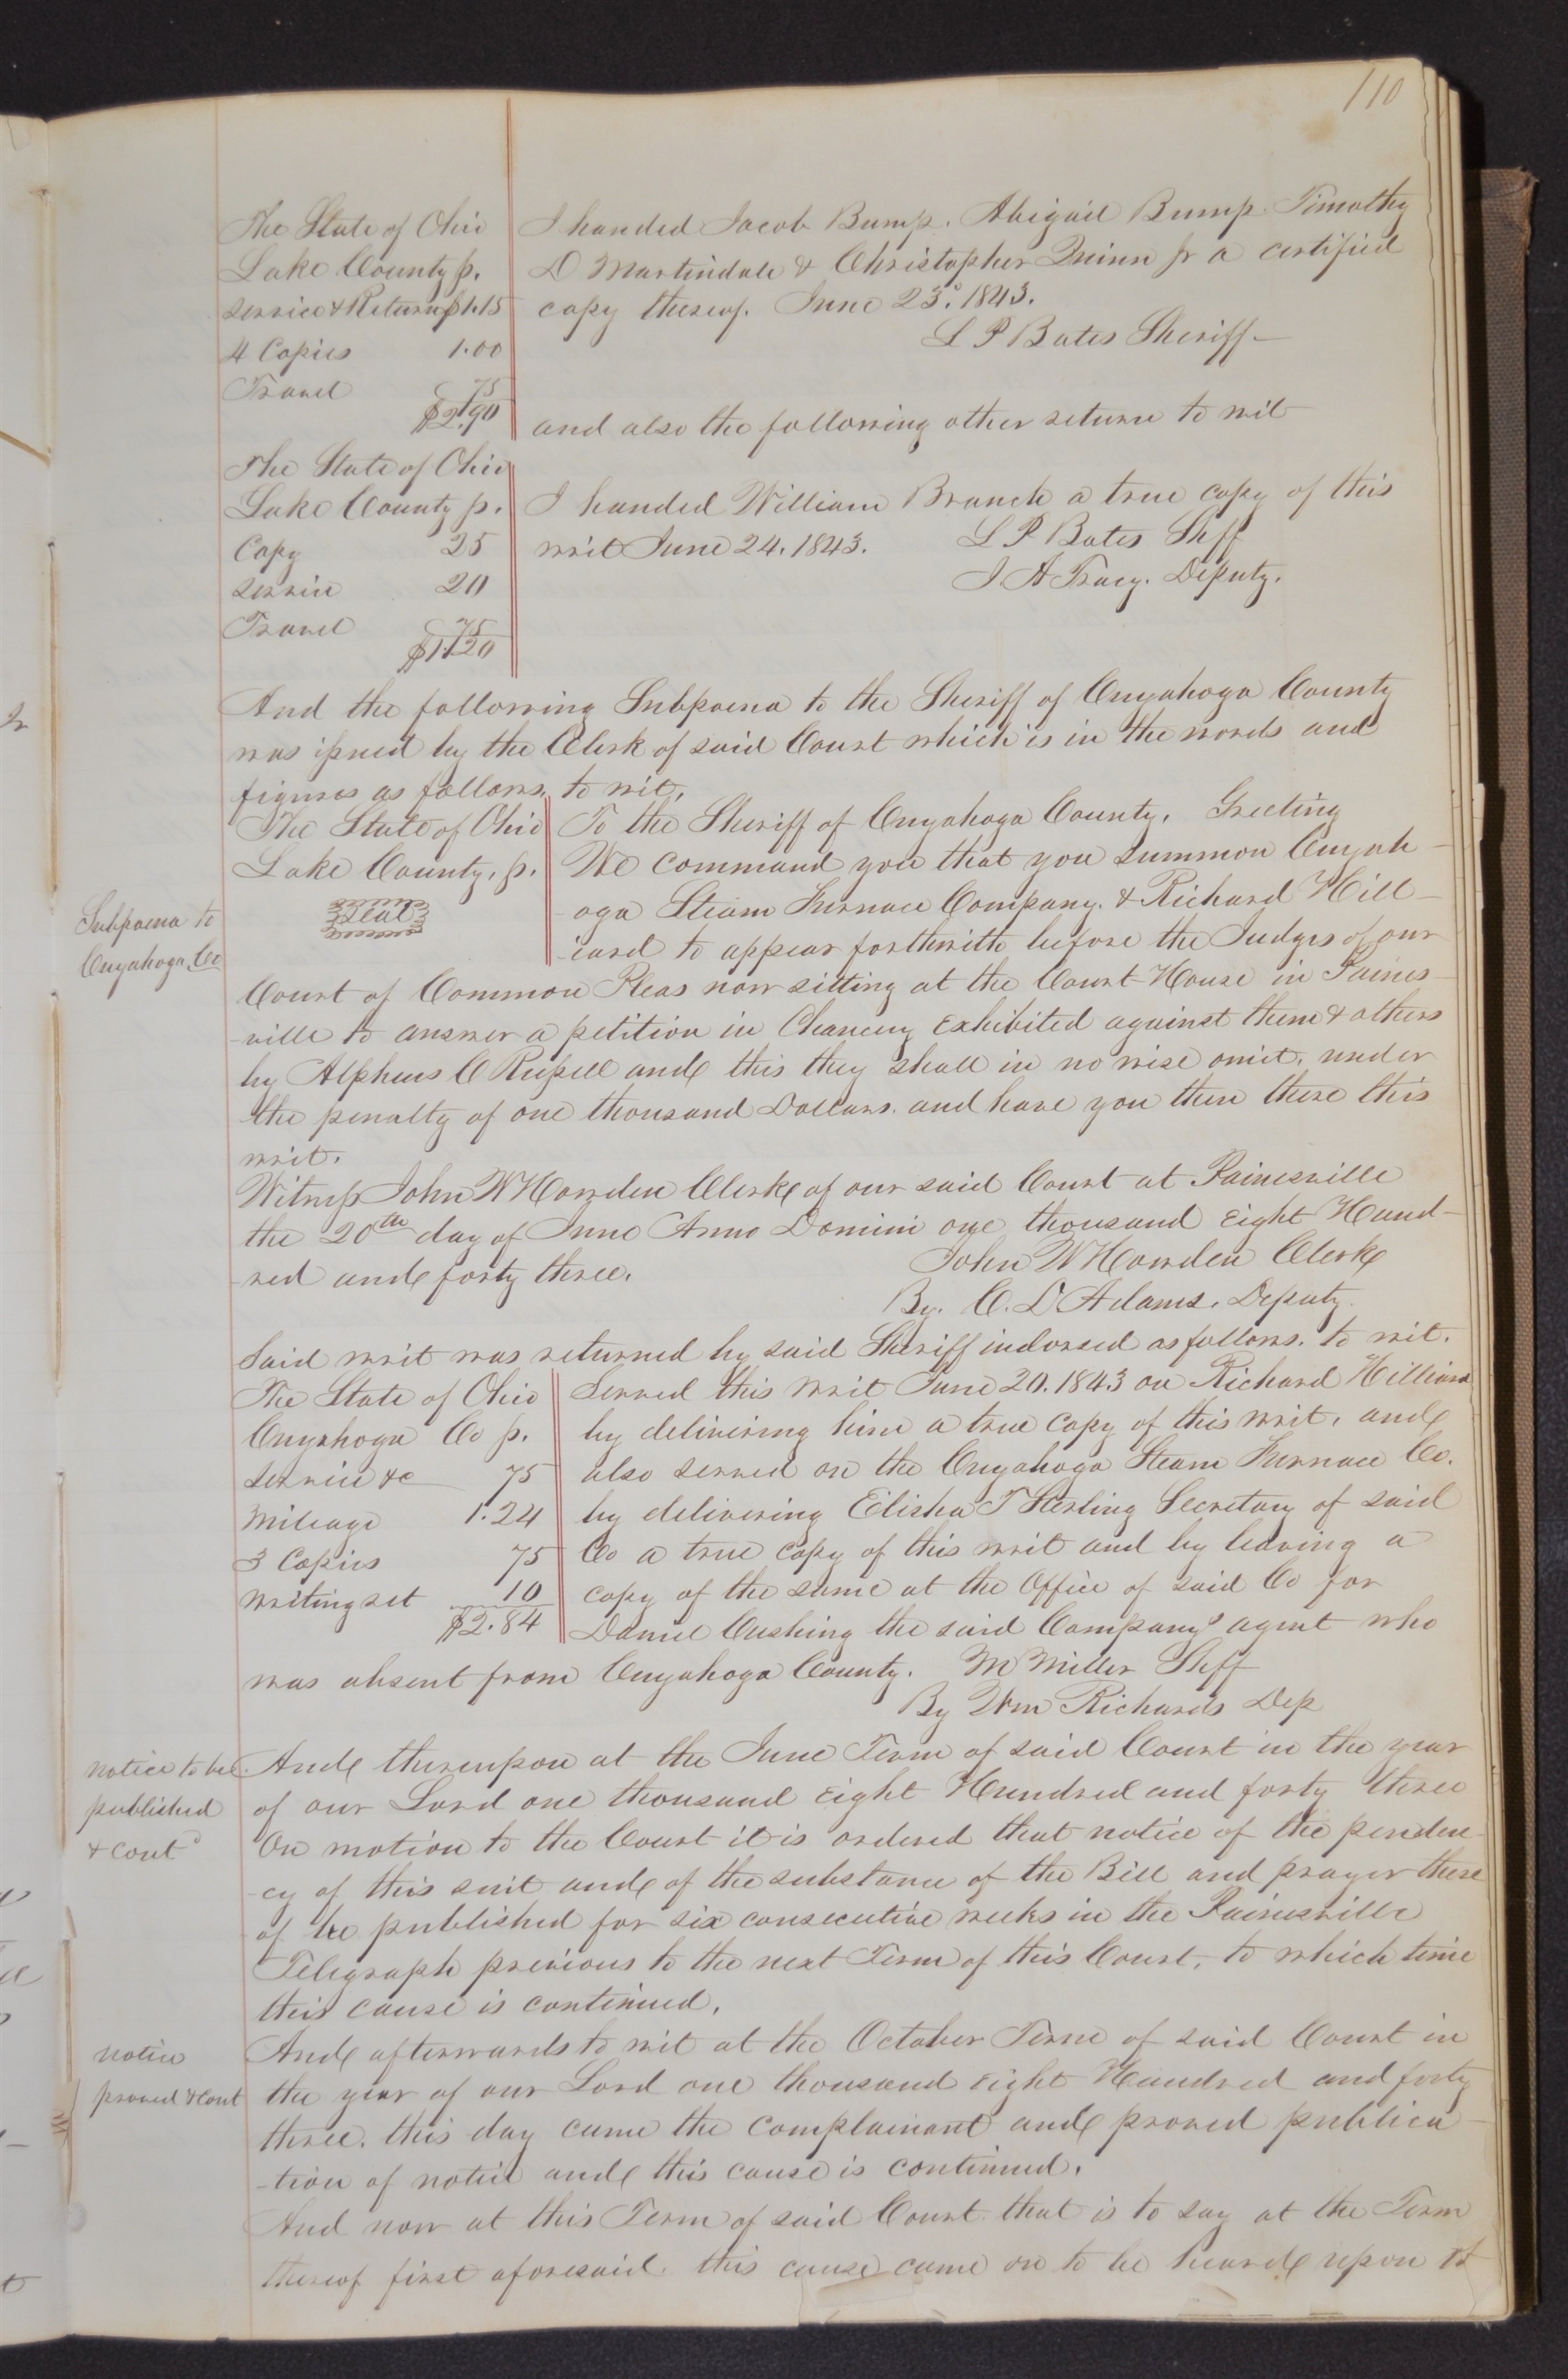 110
The State of Ohio
Lake County ss.
Service & Return $1.15
4 Copies 1.00
Travel 75
$2.90
I handed Jacob Bump. Abigail Bump. Timothy
D Martindale & Christopher Quinn Jr a certified
copy thereof. June 23d. 1843.
L P Bates Sheriff
and also the following other return to wit
The State of Ohio
Lake County ss.
Copy 25
Service 20
Travel 75
$1.20
I handed William Branch a true copy of this
writ June 24. 1843.
L P Bates Shff
I A Tracy. Deputy.
And the following Subpoena to the Sheriff of Cuyahoga County
was issued by the Clerk of said Court which is in the words and
figures as follows, to wit,
Subpoena to
Cuyahoga Co
The State of Ohio
Lake County, ss.
Seal
To the Sheriff of Cuyahoga County, Greeting
We command you that you summon Cuyah-
-oga Steam Furnace Company. & Richard Hill-
-iard to appear forthwith before the Judges of our
Court of Common Pleas now sitting at the Court House in Paines-
-ville to answer a petition in Chancery Exhibited against them & others
by Alpheus C Russell and this they shall in no wise omit, under
the penalty of one thousand Dollars. and have you then there this
writ.
Witness John W Howden Clerk of our said Court at Painesville
the 20th day of June Anno Domini one thousand Eight Hund-
-red and forty three.
John W Howden Clerk
By. C. D Adams. Deputy.
Said writ was returned by said Sheriff indorsed as follows. to wit.
The State of Ohio
Cuyahoga Co ss.
Service &c 75
Mileage 1.24
3 Copies 75
Writing ret 10
$2.84
Served this writ June 20. 1843 on Richard Hilliard
by delivering him a true copy of this writ, and
also served on the Cuyahoga Steam Furnace Co.
by delivering Elisha T Sterling Secretary of said
Co a true copy of this writ and by leaving a
copy of the same at the Office of said Co for
Daniel Cushing the said Companys agent who
was absent from Cuyahoga County. M Miller Shff
By Wm Richards Dep
notice to be
published
& contd
And thereupon at the June Term of said Court in the year
of our Lord one thousand Eight Hundred and forty three
On motion to the Court it is ordered that notice of the penden-
-cy of this suit and of the substance of the Bill and prayer there
of be published for six consecutive weeks in the Painesville
Telegraph previous to the next Term of this Court, to which time
this cause is continued.
notice
proved & Cont
And afterwards to wit at the October Term of said Court in
the year of our Lord one thousand Eight Hundred and forty
three. this day came the complainant and proved publica-
-tion of notice and this cause is continued.
And now at this Term of said Court that is to say at the Term
thereof first aforesaid. this cause came on to be heard upon